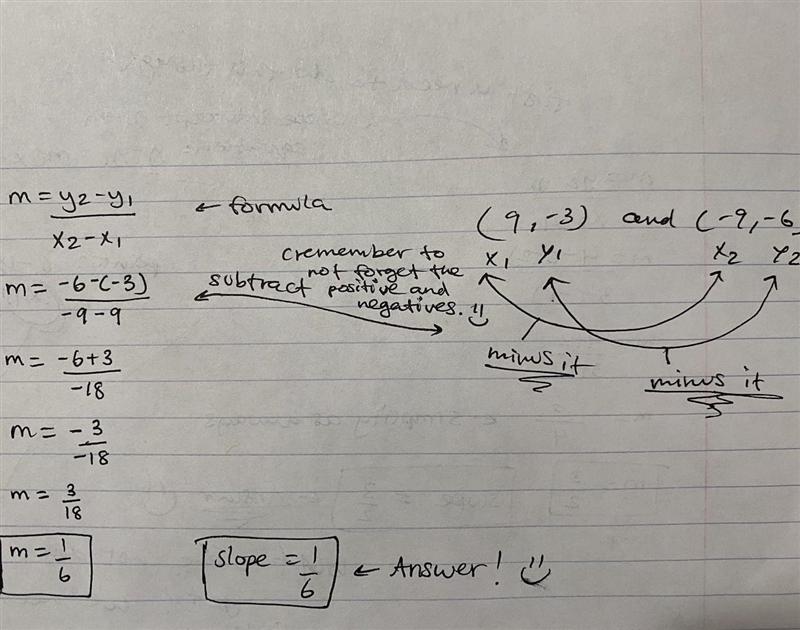 m = y2-y1 / x2-x1 ← formula
(9, -3) and (-9, -6)
x1 y1 x2 y2
m = -6-(-3) / -9-9 subtract
(remember to
not forget the
positive and
negatives.
minus it minus it
m = -6+3 / -18
m = -3 / -18
m = 3/18
m = 1/6 slope = 1/6 ← Answer!